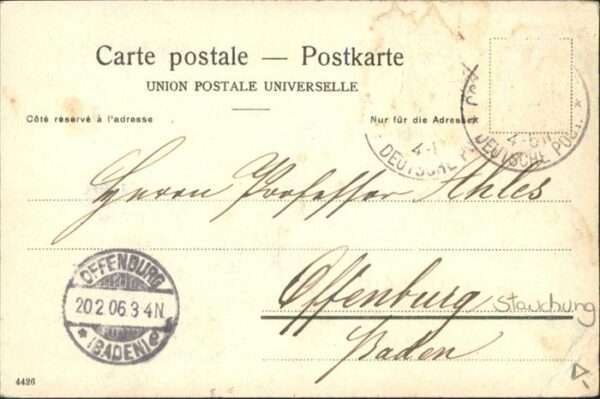 Carte postale — Postkarte
UNION POSTALE UNIVERSELLE
Côté réservé à l'adresse
Nur für die Adresse
4-
DEUTSCHE P
4-5 N
DEUTSCHE POST *
Herrn Professor Ahles
Offenburg
Stauchung
Baden
OFFENBURG
20.2.06.3-4N.
* (BADEN) e *
4426